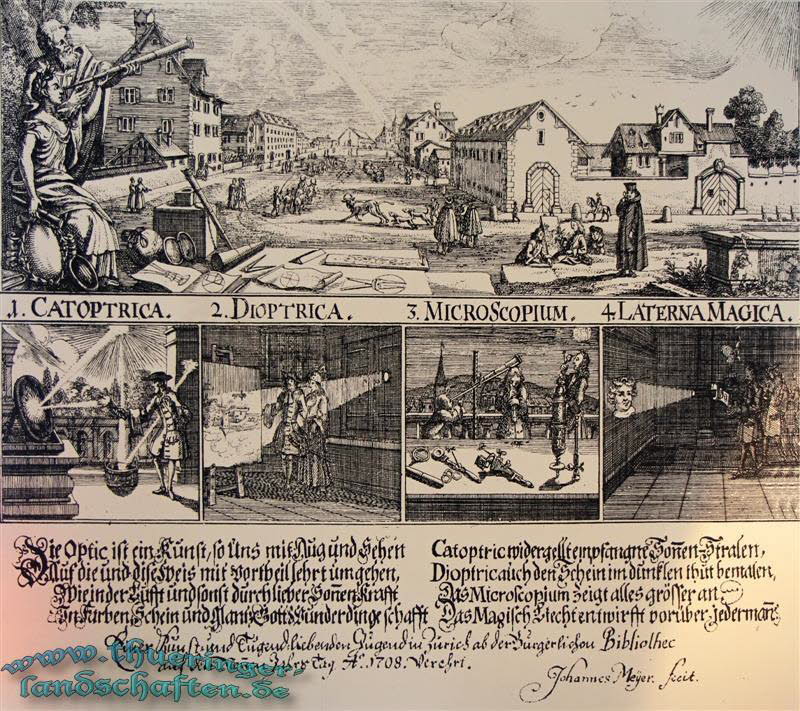 1. CATOPTRICA. 2. DIOPTRICA. 3. MICROSCOPIUM. 4. LATERNA MAGICA.
Die Optic ist ein Kunst, so Uns mit Aug und Sehen
Auf die und dise Weis mit Vortheil lehrt umgehen,
Wie in der Lufft und sonst durch lieber Sonen Krafft
In Farben Schein und Glantz Gott Wunderdinge schafft
Catoptric widergellt empfangne Sonen-Stralen,
Dioptric auch den Schein im dunklen thut bemalen,
Das Microscopium zeigt alles grösser an
Das Magisch Liecht entwirfft vorüber Jedermañ
Einer Kunst- und Tugend-liebenden Jugend in Zürich ab der Burgerlichen Bibliothec
Tag A°. 1708. Verehrt.
Johannes Meÿer. fecit.
www.thueringer-
landschaften.de